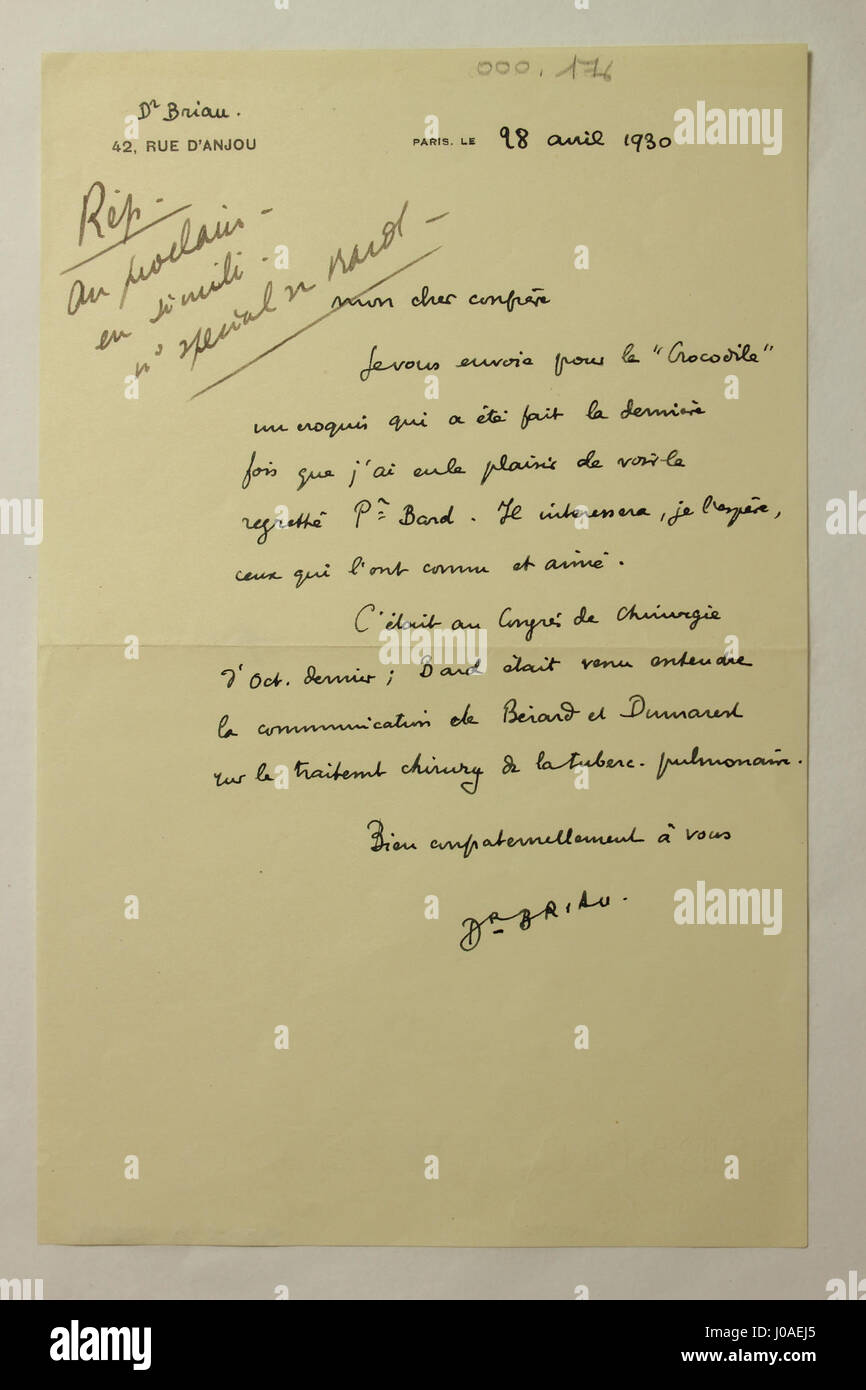 000.176
Dr Briau.
42, RUE D'ANJOU
PARIS. LE 28 avril 1930
Rép.
au prochain
en simili.
n° spécial sr Bard
mon cher confrère
Je vous envoie pour le "Crocodile"
un croquis qui a été fait la dernière
fois que j'ai eu le plaisir de voir le
regretté Pr Bard. Il interessera, je l'espère,
ceux qui l'ont connu et aimé.
C'était au Congrès de Chirurgie
d'Oct. dernier; Bard était venu entendre
la communication de Bérard et Dumarest
sur le traitemt chirurg de la tuberc. pulmonaire.
Bien confraternellement à vous
Dr BRIAU.
alamy
Image ID: J0AEJ5
www.alamy.com